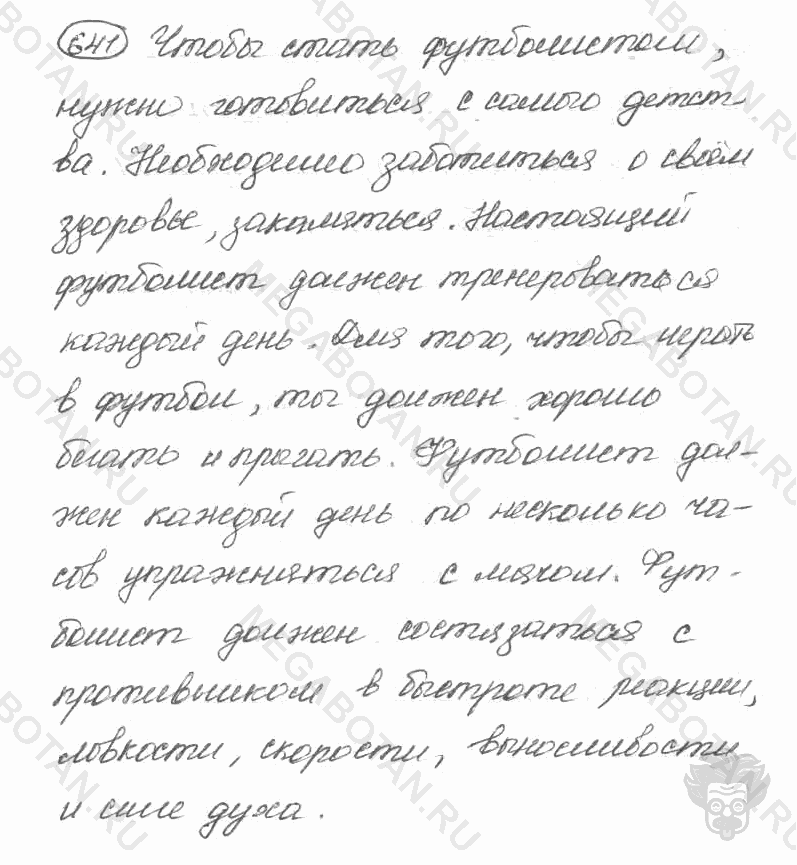 641 Чтобы стать футболистом,
нужно готовиться с самого детст-
ва. Необходимо заботиться о своём
здоровье, закаляться. Настоящий
футболист должен тренероваться
каждый день. Для того, чтобы играть
в футбол, ты должен хорошо
бегать и прыгать. Футболист дол-
жен каждый день по несколько ча-
сов упражняться с мячом. Фут-
болист должен состязаться с
противником в быстроте реакции,
ловкости, скорости, выносливости
и силе духа.
MEGABOTAN.RU